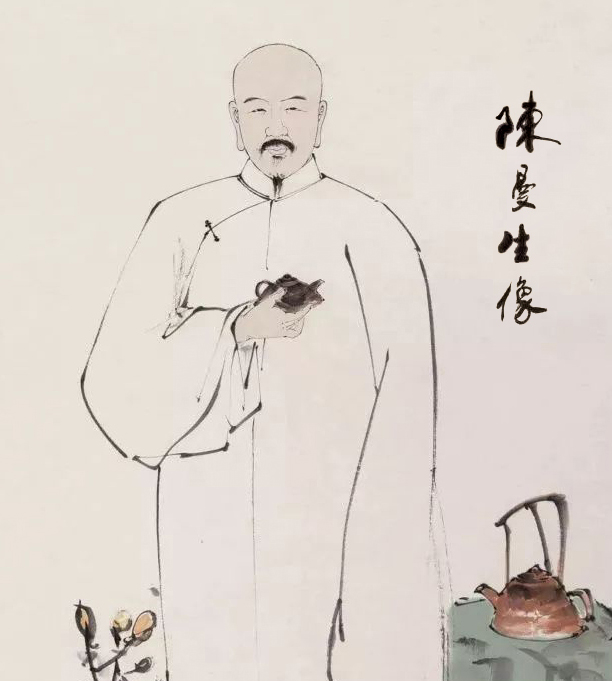 陳曼生像